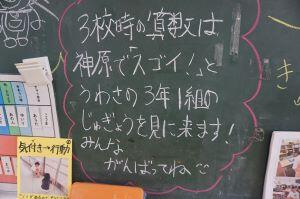 3校時の算数は
神原で「スゴイ!」と
うわさの3年1組の
じゅぎょうを見に来ます!
みんな
がんばってね
気付き→行動